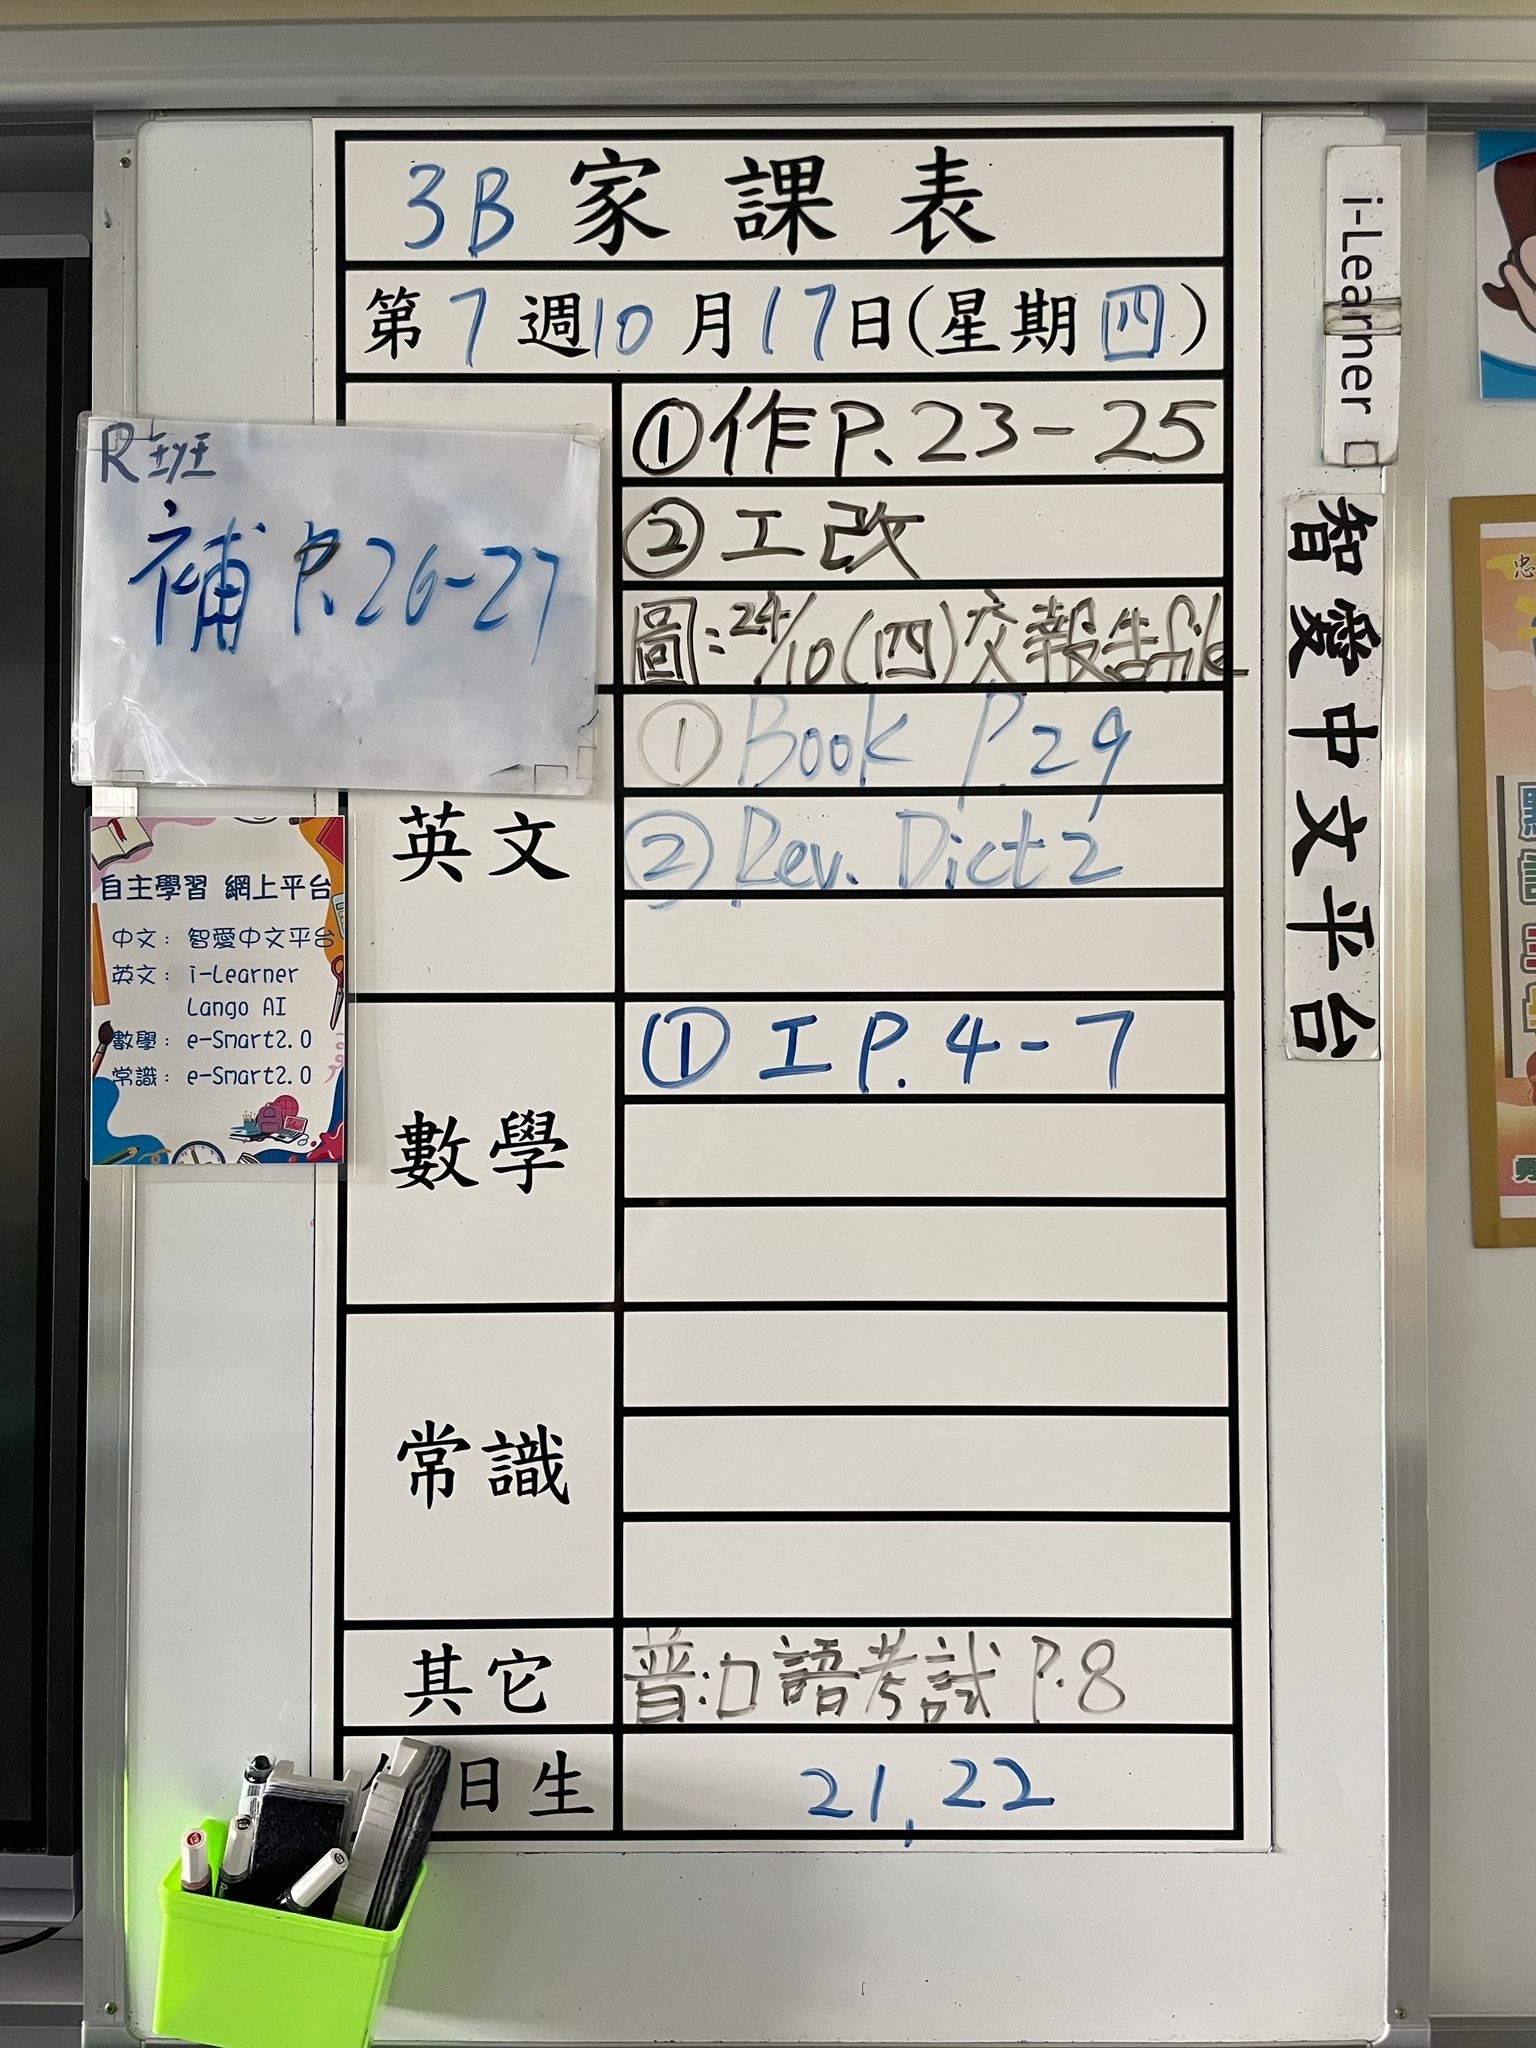 3B 家課表
第7週10月17日(星期四)
①作P.23-25
②工改
圖:24/10(四)交報告file
R班
補 P.26-27
英文
① Book P.29
② Rev. Dict 2
數學
① 工P.4-7
常識
其它
普:口語考試 P.8
日生
21,22
自主學習 網上平台
中文: 智愛中文平台
英文: i-Learner
Lango AI
數學: e-Smart2.0
常識: e-Smart2.0
i-Learner
智愛中文平台